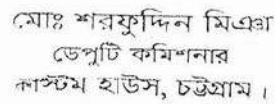 মোঃ শরফুদ্দিন মিঞা
ডেপুটি কমিশনার
কাস্টম হাউস, চট্টগ্রাম।